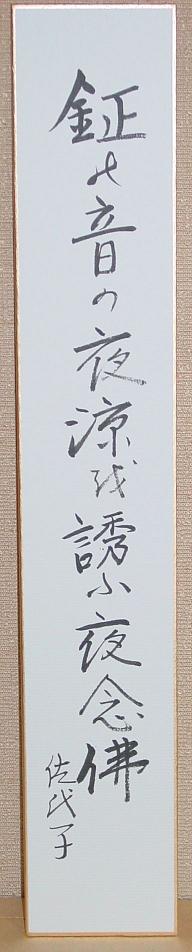 鉦の音の夜涼を誘ふ夜念佛
佐代子